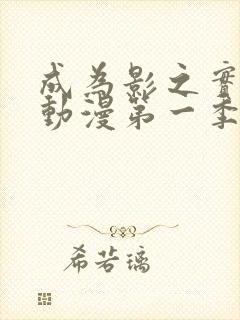 成為影之實
動漫第一季
希若璃